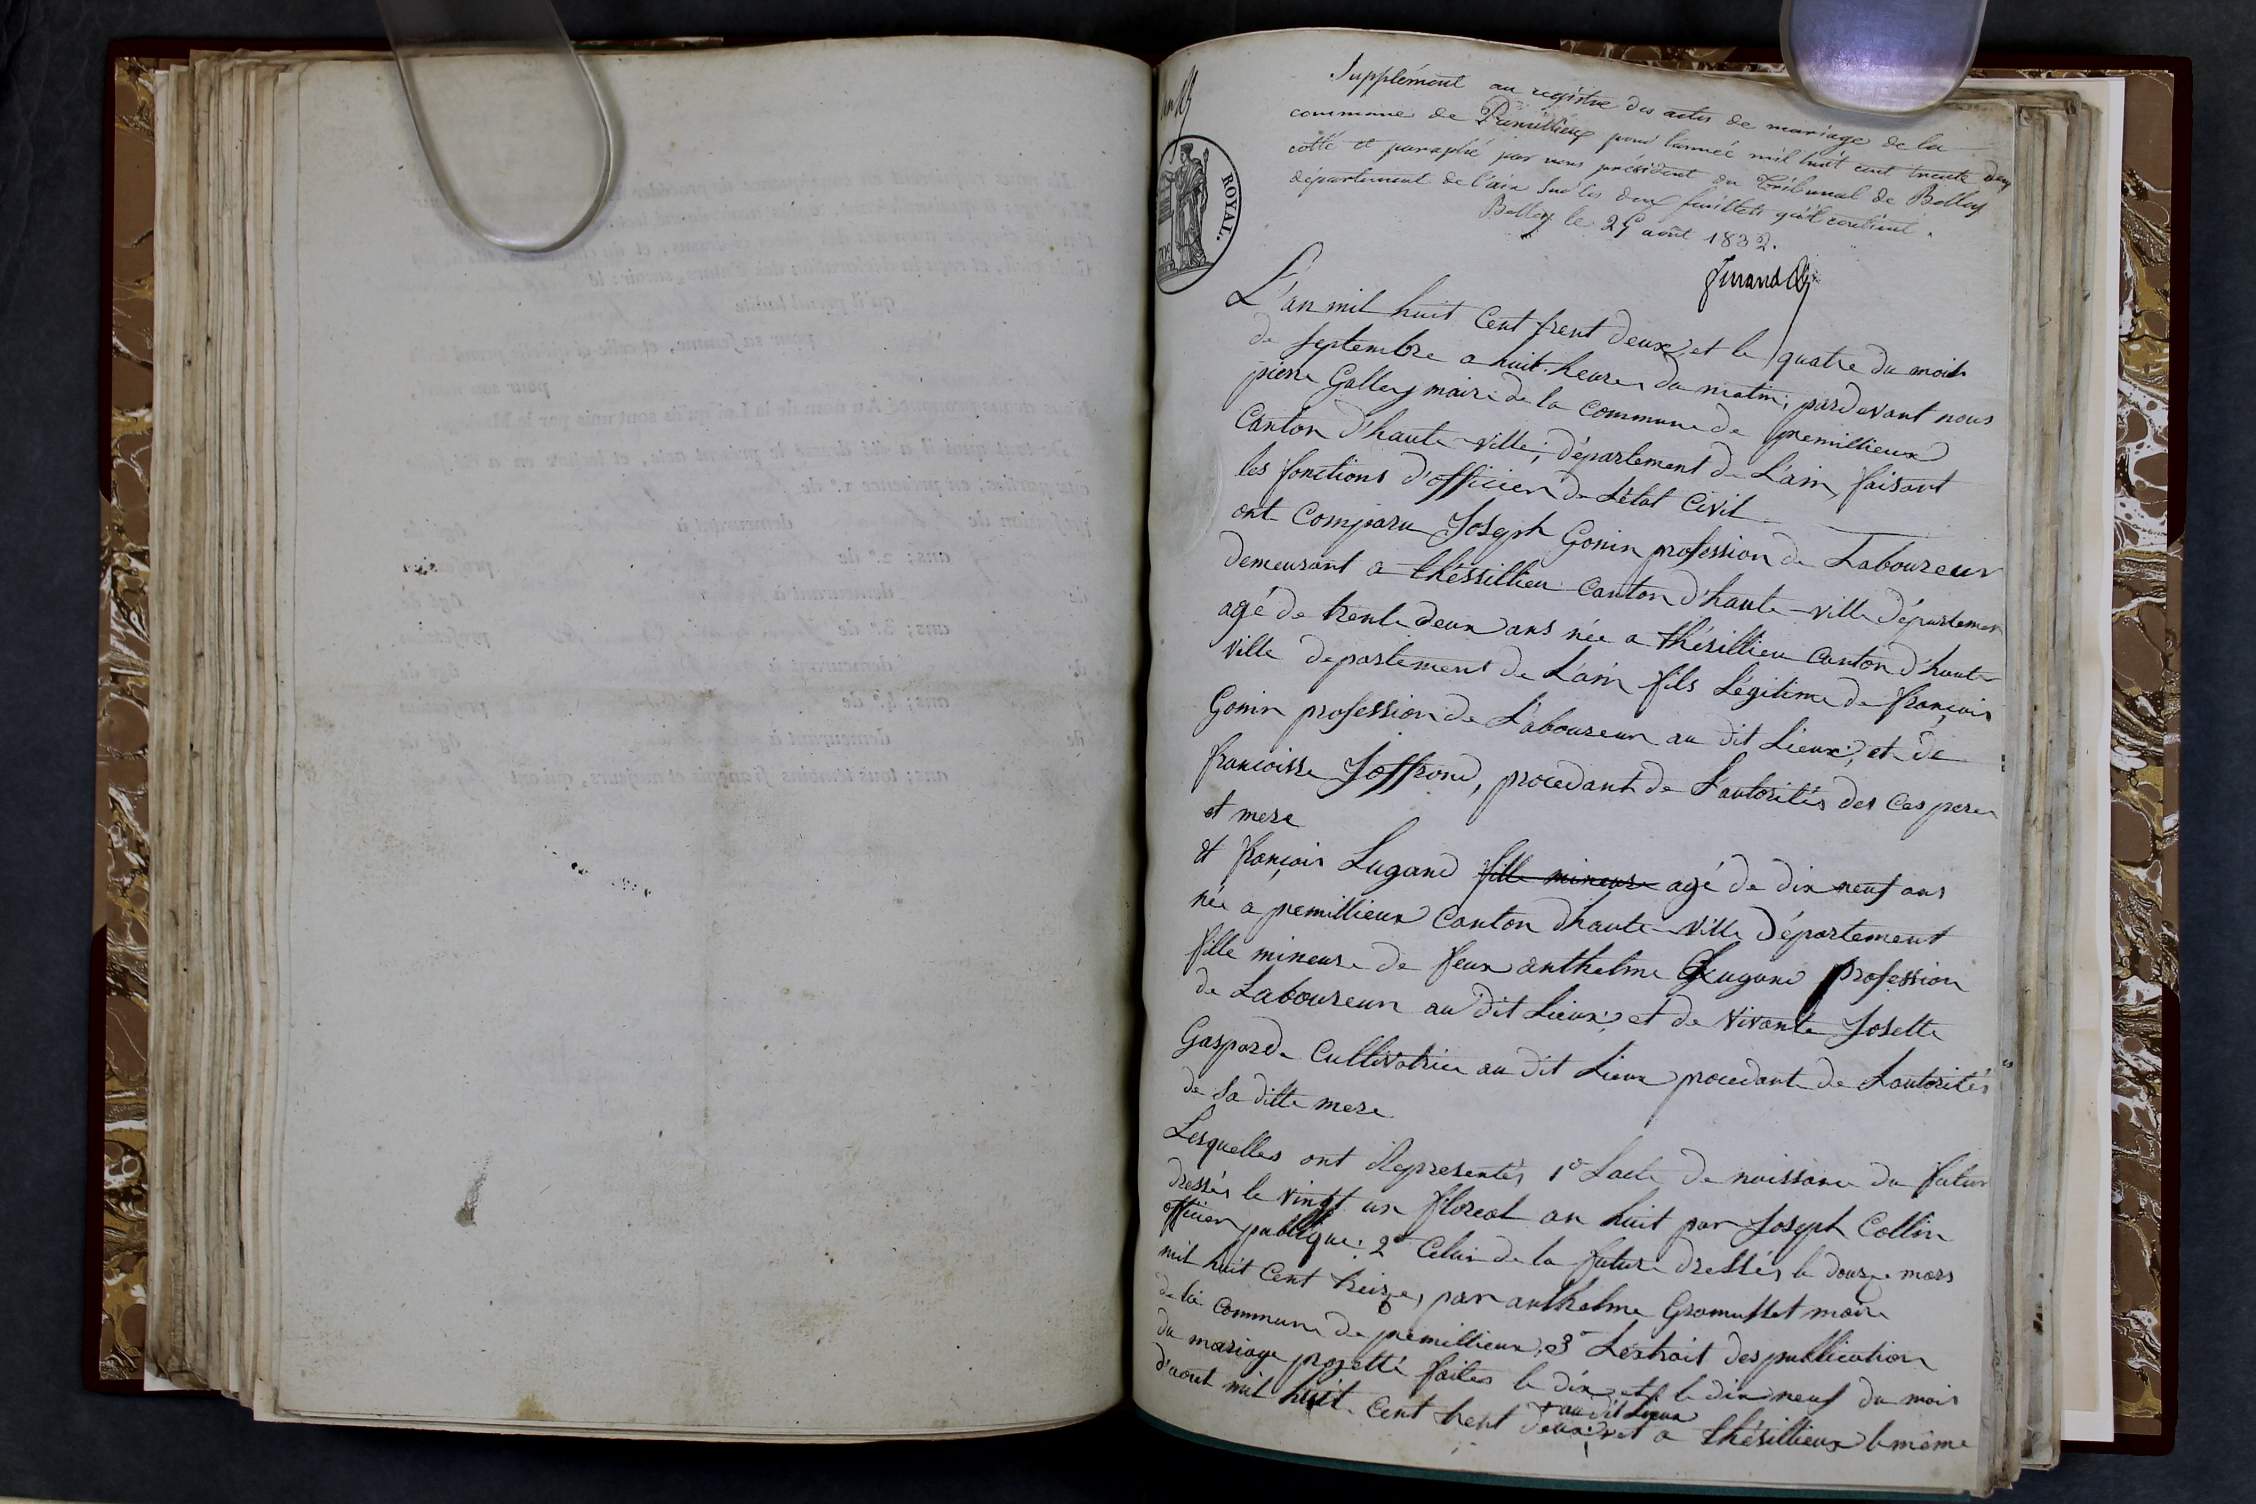 Supplément au registre des actes de mariage de la
commune de Prémillieux pour l'année mil huit cent trente deux
cotté et paraphé par nous président du Tribunal de Belley
département de l'ain sur les deux feuillets qu'il contient.
Belley le 29 août 1832.
ROYAL.
L'an mil huit Cent trent deux, et le quatre du mois
de septembre a huit heures du matin; pardevant nous
pierre Galley maire de la Commune de premillieux
Canton d'haute-ville; département de L'ain, faisant
les fonctions d'officier de L'état Civil
ont Comparu Joseph Gonin profession de Laboureur
demeurant a thésillieu Canton d'haute-ville départemen
agé de trente deux ans née a thésillieu Canton d'haute
ville departement de L'ain fils Légitime de françois
Gonin profession de Laboureur au dit Lieux; et de
francoisse Joffrond, procedant de Lautorités des Ces peres
et mere
et françois Lugand fille mineure agé de dix neuf ans
née a premillieux Canton dhaute-ville Département
fille mineure de feux anthelme Lugand profession
de Laboureur au dit Lieux; et de vivante Josette
Gasparde Cultivatrice au dit Lieux procedant de Lautorités
de Sa ditte mere
Lesquelles ont Representés 1° Lacte de naissance du futur
dressés le vingt un floreal an huit par Joseph Collin
officier publique; 2° Celui de la future dressés le douze mars
mil huit Cent treize, par anthelme Gramusset maire
de la Commune de premillieux, 3° Lextrait des publication
du mariage projetté faites le dix et le dix neuf du mois
au dit Lieux
d'aout mil huit Cent trent deux; et a thésillieux le même